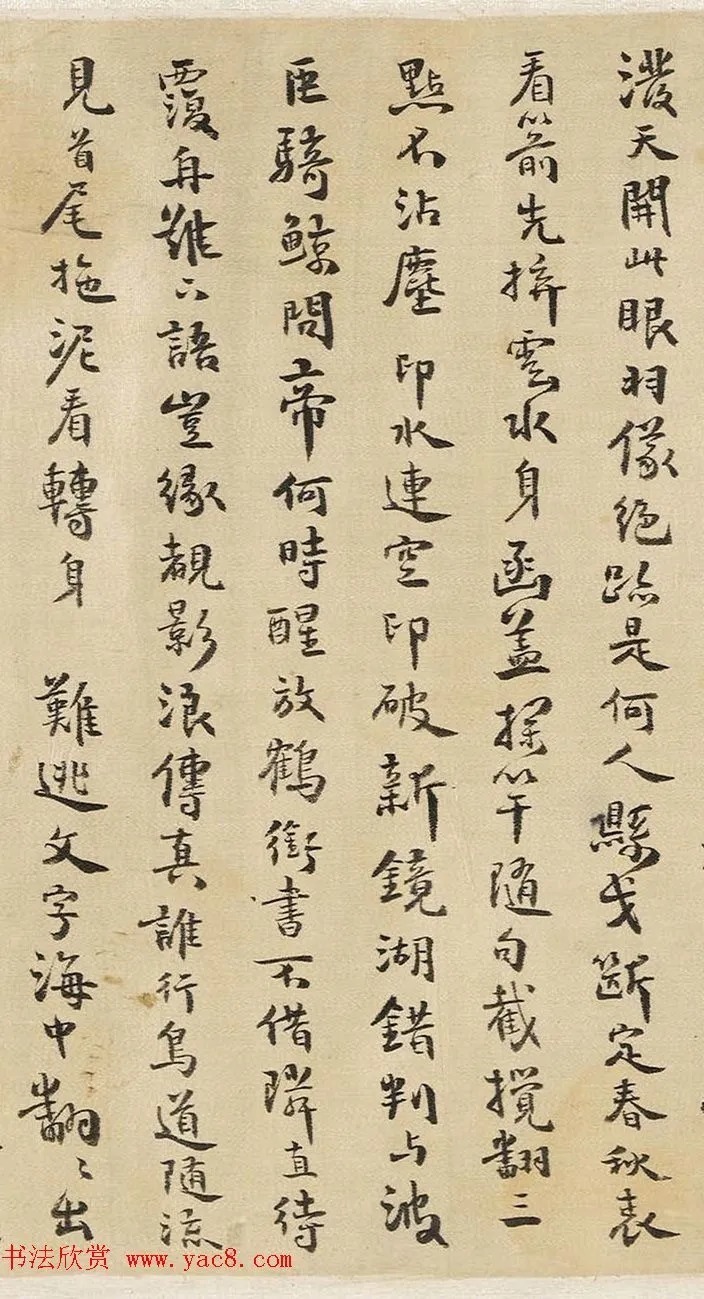 潑天開此眼羽儀絕跡是何人懸戈斷定春秋表
看箭先擠雲水身函蓋探竿隨句截攪翻三
點不沾塵 印水連空印破新鏡湖錯判与波
臣騎鯨問帝何時醒放鶴銜書不借隣直待
覆舟難下語豈緣覩影浪傳真誰行鳥道随流
見首尾拖泥看轉身 難逃文字海中翻〻出
书法欣赏 www.yac8.com